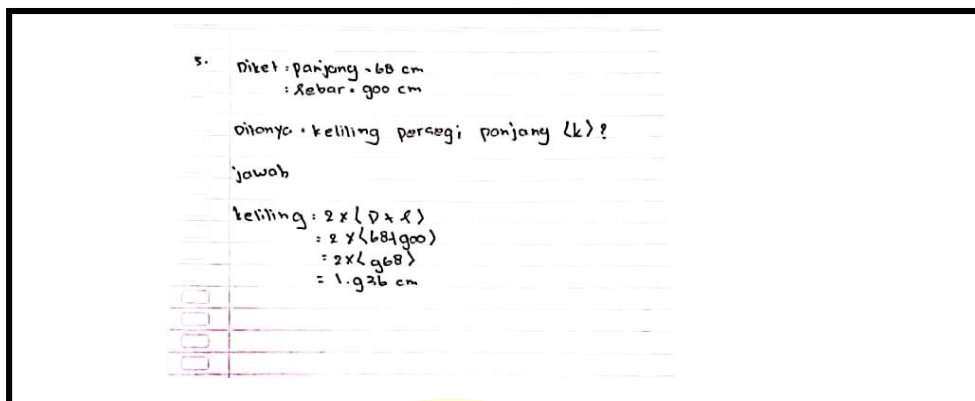 5. Diket : panjang = 68 cm
: lebar = 900 cm
Ditanya : keliling persegi panjang (k)?
jawab
keliling : 2 x (p + l)
: 2 x (68+900)
= 2x( 968)
= 1.936 cm